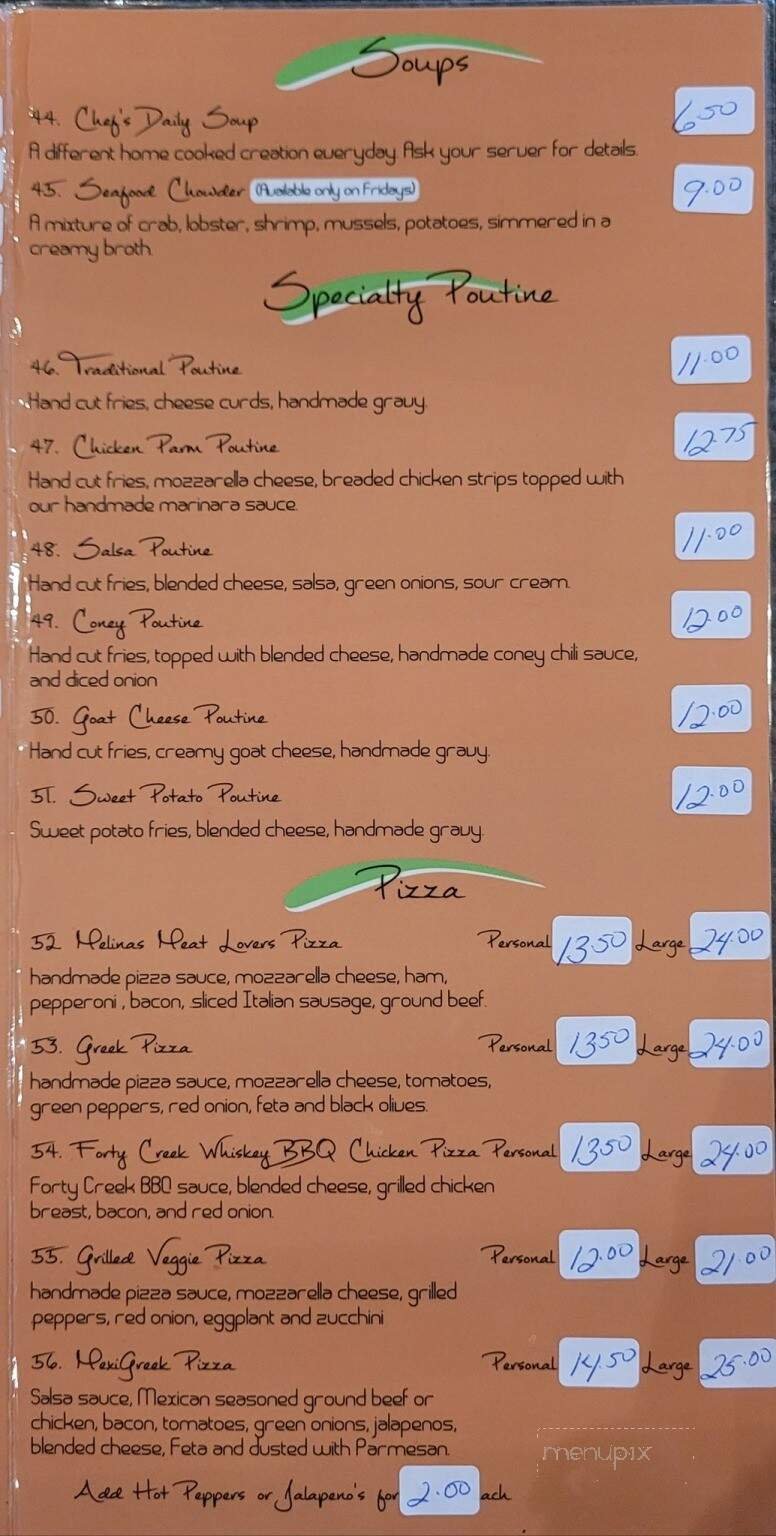 Soups
44. Chef's Daily Soup 6.50
A different home cooked creation everyday. Ask your server for details.
45. Seafood Chowder (Available only on Fridays) 9.00
A mixture of crab, lobster, shrimp, mussels, potatoes, simmered in a
creamy broth.
Specialty Poutine
46. Traditional Poutine 11.00
Hand cut fries, cheese curds, handmade gravy.
47. Chicken Parm Poutine 12.75
Hand cut fries, mozzarella cheese, breaded chicken strips topped with
our handmade marinara sauce.
48. Salsa Poutine 11.00
Hand cut fries, blended cheese, salsa, green onions, sour cream.
49. Coney Poutine 12.00
Hand cut fries, topped with blended cheese, handmade coney chili sauce,
and diced onion
50. Goat Cheese Poutine 12.00
Hand cut fries, creamy goat cheese, handmade gravy.
51. Sweet Potato Poutine 12.00
Sweet potato fries, blended cheese, handmade gravy.
Pizza
52. Melinas Meat Lovers Pizza Personal 13.50 Large 24.00
handmade pizza sauce, mozzarella cheese, ham,
pepperoni , bacon, sliced Italian sausage, ground beef.
53. Greek Pizza Personal 13.50 Large 24.00
handmade pizza sauce, mozzarella cheese, tomatoes,
green peppers, red onion, feta and black olives.
54. Forty Creek Whiskey BBQ Chicken Pizza Personal 13.50 Large 24.00
Forty Creek BBQ sauce, blended cheese, grilled chicken
breast, bacon, and red onion.
55. Grilled Veggie Pizza Personal 12.00 Large 21.00
handmade pizza sauce, mozzarella cheese, grilled
peppers, red onion, eggplant and zucchini
56. MexiGreek Pizza Personal 14.50 Large 25.00
Salsa sauce, Mexican seasoned ground beef or
chicken, bacon, tomatoes, green onions, jalapenos,
blended cheese, Feta and dusted with Parmesan.
Add Hot Peppers or Jalapeno's for 2.00 each
menupix